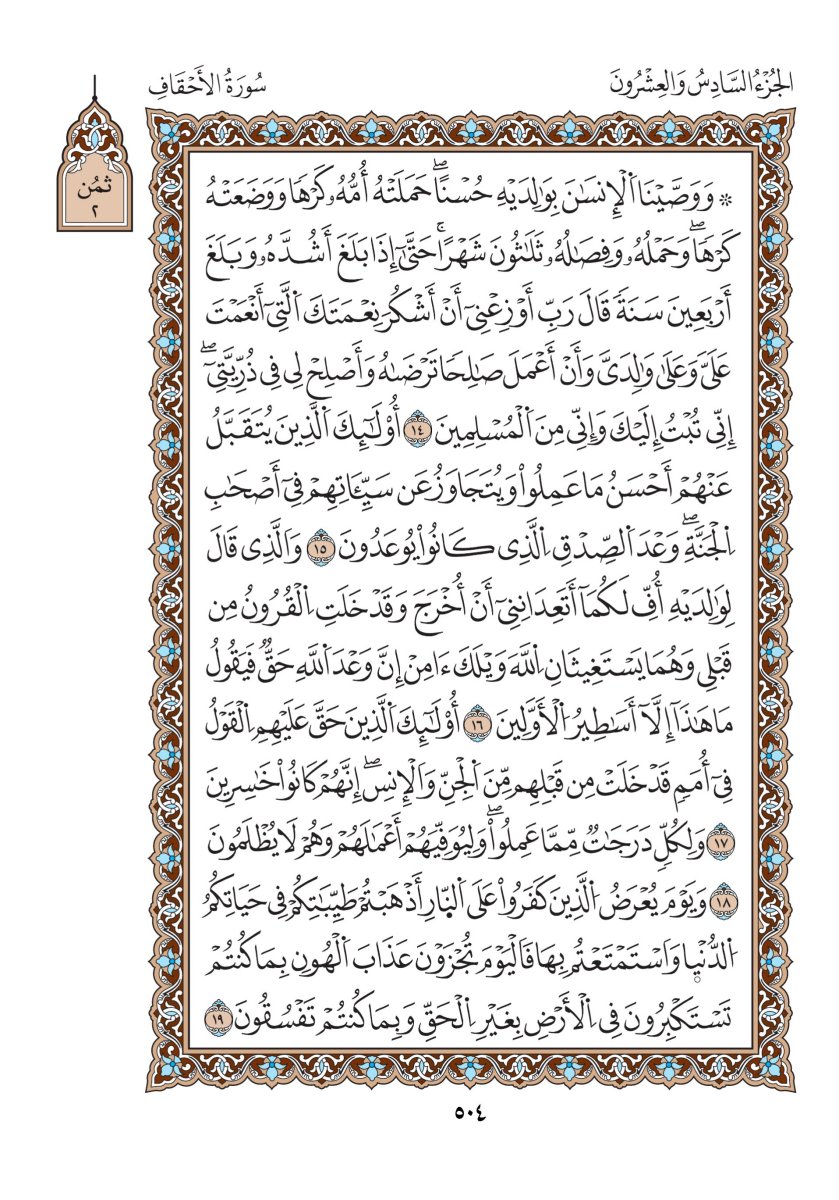 الجُزْءُ السَّادِسُ وَالعِشْرُونَ
سُورَةُ الأَحْقَافِ
ثمُن
٢
۞ وَوَصَّيْنَا اَلْإِنسَٰنَ بِوَٰلِدَيْهِ حُسْناًۖ حَمَلَتْهُ أُمُّهُۥ كَرْهاٗ وَوَضَعَتْهُ
كَرْهاٗۖ وَحَمْلُهُۥ وَفِصَٰلُهُۥ ثَلَٰثُونَ شَهْراًۚ حَتَّىٰٓ إِذَا بَلَغَ أَشُدَّهُۥ وَبَلَغَ
أَرْبَعِينَ سَنَةٗ قَالَ رَبِّ أَوْزِعْنِيٓ أَنْ أَشْكُرَ نِعْمَتَكَ اَلَّتِيٓ أَنْعَمْتَ
عَلَيَّ وَعَلَىٰ وَٰلِدَيَّ وَأَنْ أَعْمَلَ صَٰلِحاٗ تَرْضَىٰهُ وَأَصْلِحْ لِي فِي ذُرِّيَّتِيٓۖ
إِنِّي تُبْتُ إِلَيْكَ وَإِنِّي مِنَ اَلْمُسْلِمِينَ ١٤ أُوْلَٰٓئِكَ اَلَّذِينَ يُتَقَبَّلُ
عَنْهُمْ أَحْسَنُ مَا عَمِلُواْ وَيُتَجَاوَزُ عَن سَيِّـَٔاتِهِمْ فِيٓ أَصْحَٰبِ
اِلْجَنَّةِۖ وَعْدَ اَلصِّدْقِ اِلَّذِي كَانُواْ يُوعَدُونَ ١٥ وَالَّذِي قَالَ
لِوَٰلِدَيْهِ أُفّٖ لَّكُمَآ أَتَعِدَانِنِيٓ أَنْ أُخْرَجَ وَقَدْ خَلَتِ اِلْقُرُونُ مِن
قَبْلِي وَهُمَا يَسْتَغِيثَانِ اِللَّهَ وَيْلَكَ ءَامِنْ إِنَّ وَعْدَ اَللَّهِ حَقّٞ فَيَقُولُ
مَا هَٰذَآ إِلَّآ أَسَٰطِيرُ اُلْأَوَّلِينَ ١٦ أُوْلَٰٓئِكَ اَلَّذِينَ حَقَّ عَلَيْهِمِ اِلْقَوْلُ
فِيٓ أُمَمٖ قَدْ خَلَتْ مِن قَبْلِهِم مِّنَ اَلْجِنِّ وَالْإِنسِۖ إِنَّهُمْ كَانُواْ خَٰسِرِينَ
١٧ وَلِكُلّٖ دَرَجَٰتٞ مِّمَّا عَمِلُواْۖ وَلِيُوَفِّيَهُمْ أَعْمَٰلَهُمْ وَهُمْ لَا يُظْلَمُونَ
١٨ وَيَوْمَ يُعْرَضُ اُلَّذِينَ كَفَرُواْ عَلَى اَلنّ۪ارِ أَذْهَبْتُمْ طَيِّبَٰتِكُمْ فِي حَيَاتِكُمُ
اُلدُّنْي۪ا وَاسْتَمْتَعْتُم بِهَا فَالْيَوْمَ تُجْزَوْنَ عَذَابَ اَلْهُونِ بِمَا كُنتُمْ
تَسْتَكْبِرُونَ فِي اِلْأَرْضِ بِغَيْرِ اِلْحَقِّ وَبِمَا كُنتُمْ تَفْسُقُونَ ١٩
٥٠٤